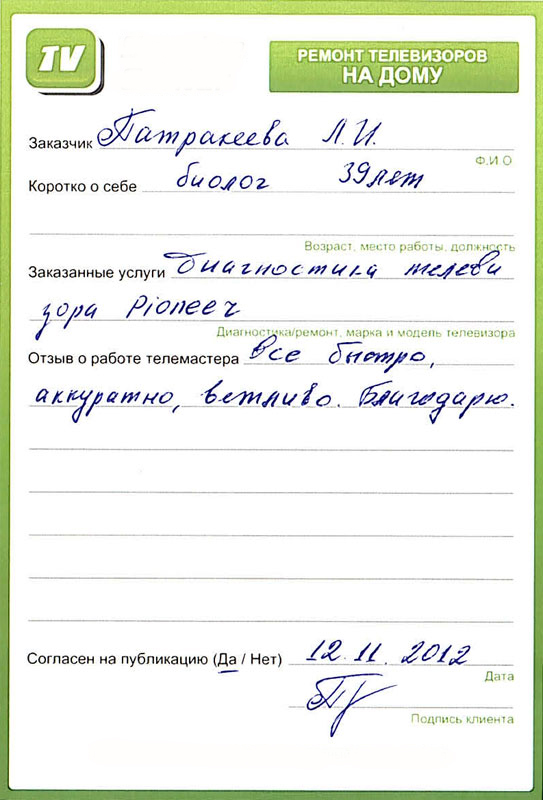 TV
РЕМОНТ ТЕЛЕВИЗОРОВ
НА ДОМУ
Заказчик Патракеева Л.И.
Ф.И.О
Коротко о себе биолог 39 лет
Возраст, место работы, должность
Заказанные услуги Диагностика телеви
зора Pioneer
Диагностика/ремонт, марка и модель телевизора
Отзыв о работе телемастера Все быстро,
аккуратно, вежливо. Благодарю.
Согласен на публикацию (Да / Нет) 12.11.2012
Дата
Подпись клиента